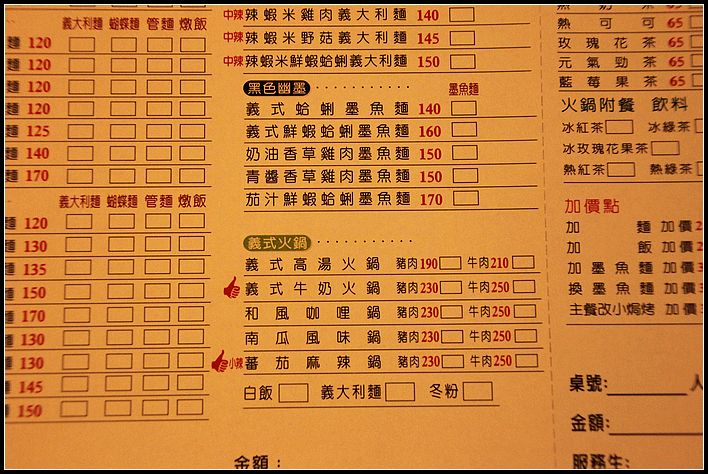 義大利麵 蝴蝶麵 管麵 燉飯
麵 120
麵 120
麵 120
麵 120
麵 125
麵 140
麵 170
義大利麵 蝴蝶麵 管麵 燉飯
麵 120
麵 130
麵 135
麵 150
麵 170
麵 130
麵 130
麵 145
麵 150
中辣 辣蝦米雞肉義大利麵 140
中辣 辣蝦米野菇義大利麵 145
中辣 辣蝦米鮮蝦蛤蜊義大利麵 150
黑色幽墨 ············ 墨魚麵
義式蛤蜊墨魚麵 140
義式鮮蝦蛤蜊墨魚麵 160
奶油香草雞肉墨魚麵 150
青醬香草雞肉墨魚麵 150
茄汁鮮蝦蛤蜊墨魚麵 170
義式火鍋 ············
義式高湯火鍋 豬肉190 牛肉210
義式牛奶火鍋 豬肉230 牛肉250
和風咖哩鍋 豬肉230 牛肉250
南瓜風味鍋 豬肉230 牛肉250
小辣 蕃茄麻辣鍋 豬肉230 牛肉250
白飯 義大利麵 冬粉
金額：
熱奶茶 65
熱可可 65
玫瑰花茶 65
元氣勁茶 65
藍莓果茶 65
火鍋附餐 飲料
冰紅茶 冰綠茶
冰玫瑰花果茶
熱紅茶 熱綠茶
加價點
加麵 加價
加飯 加價
加墨魚麵 加價
換墨魚麵 加價
主餐改小焗烤 加價
桌號: 人
金額:
服務生: